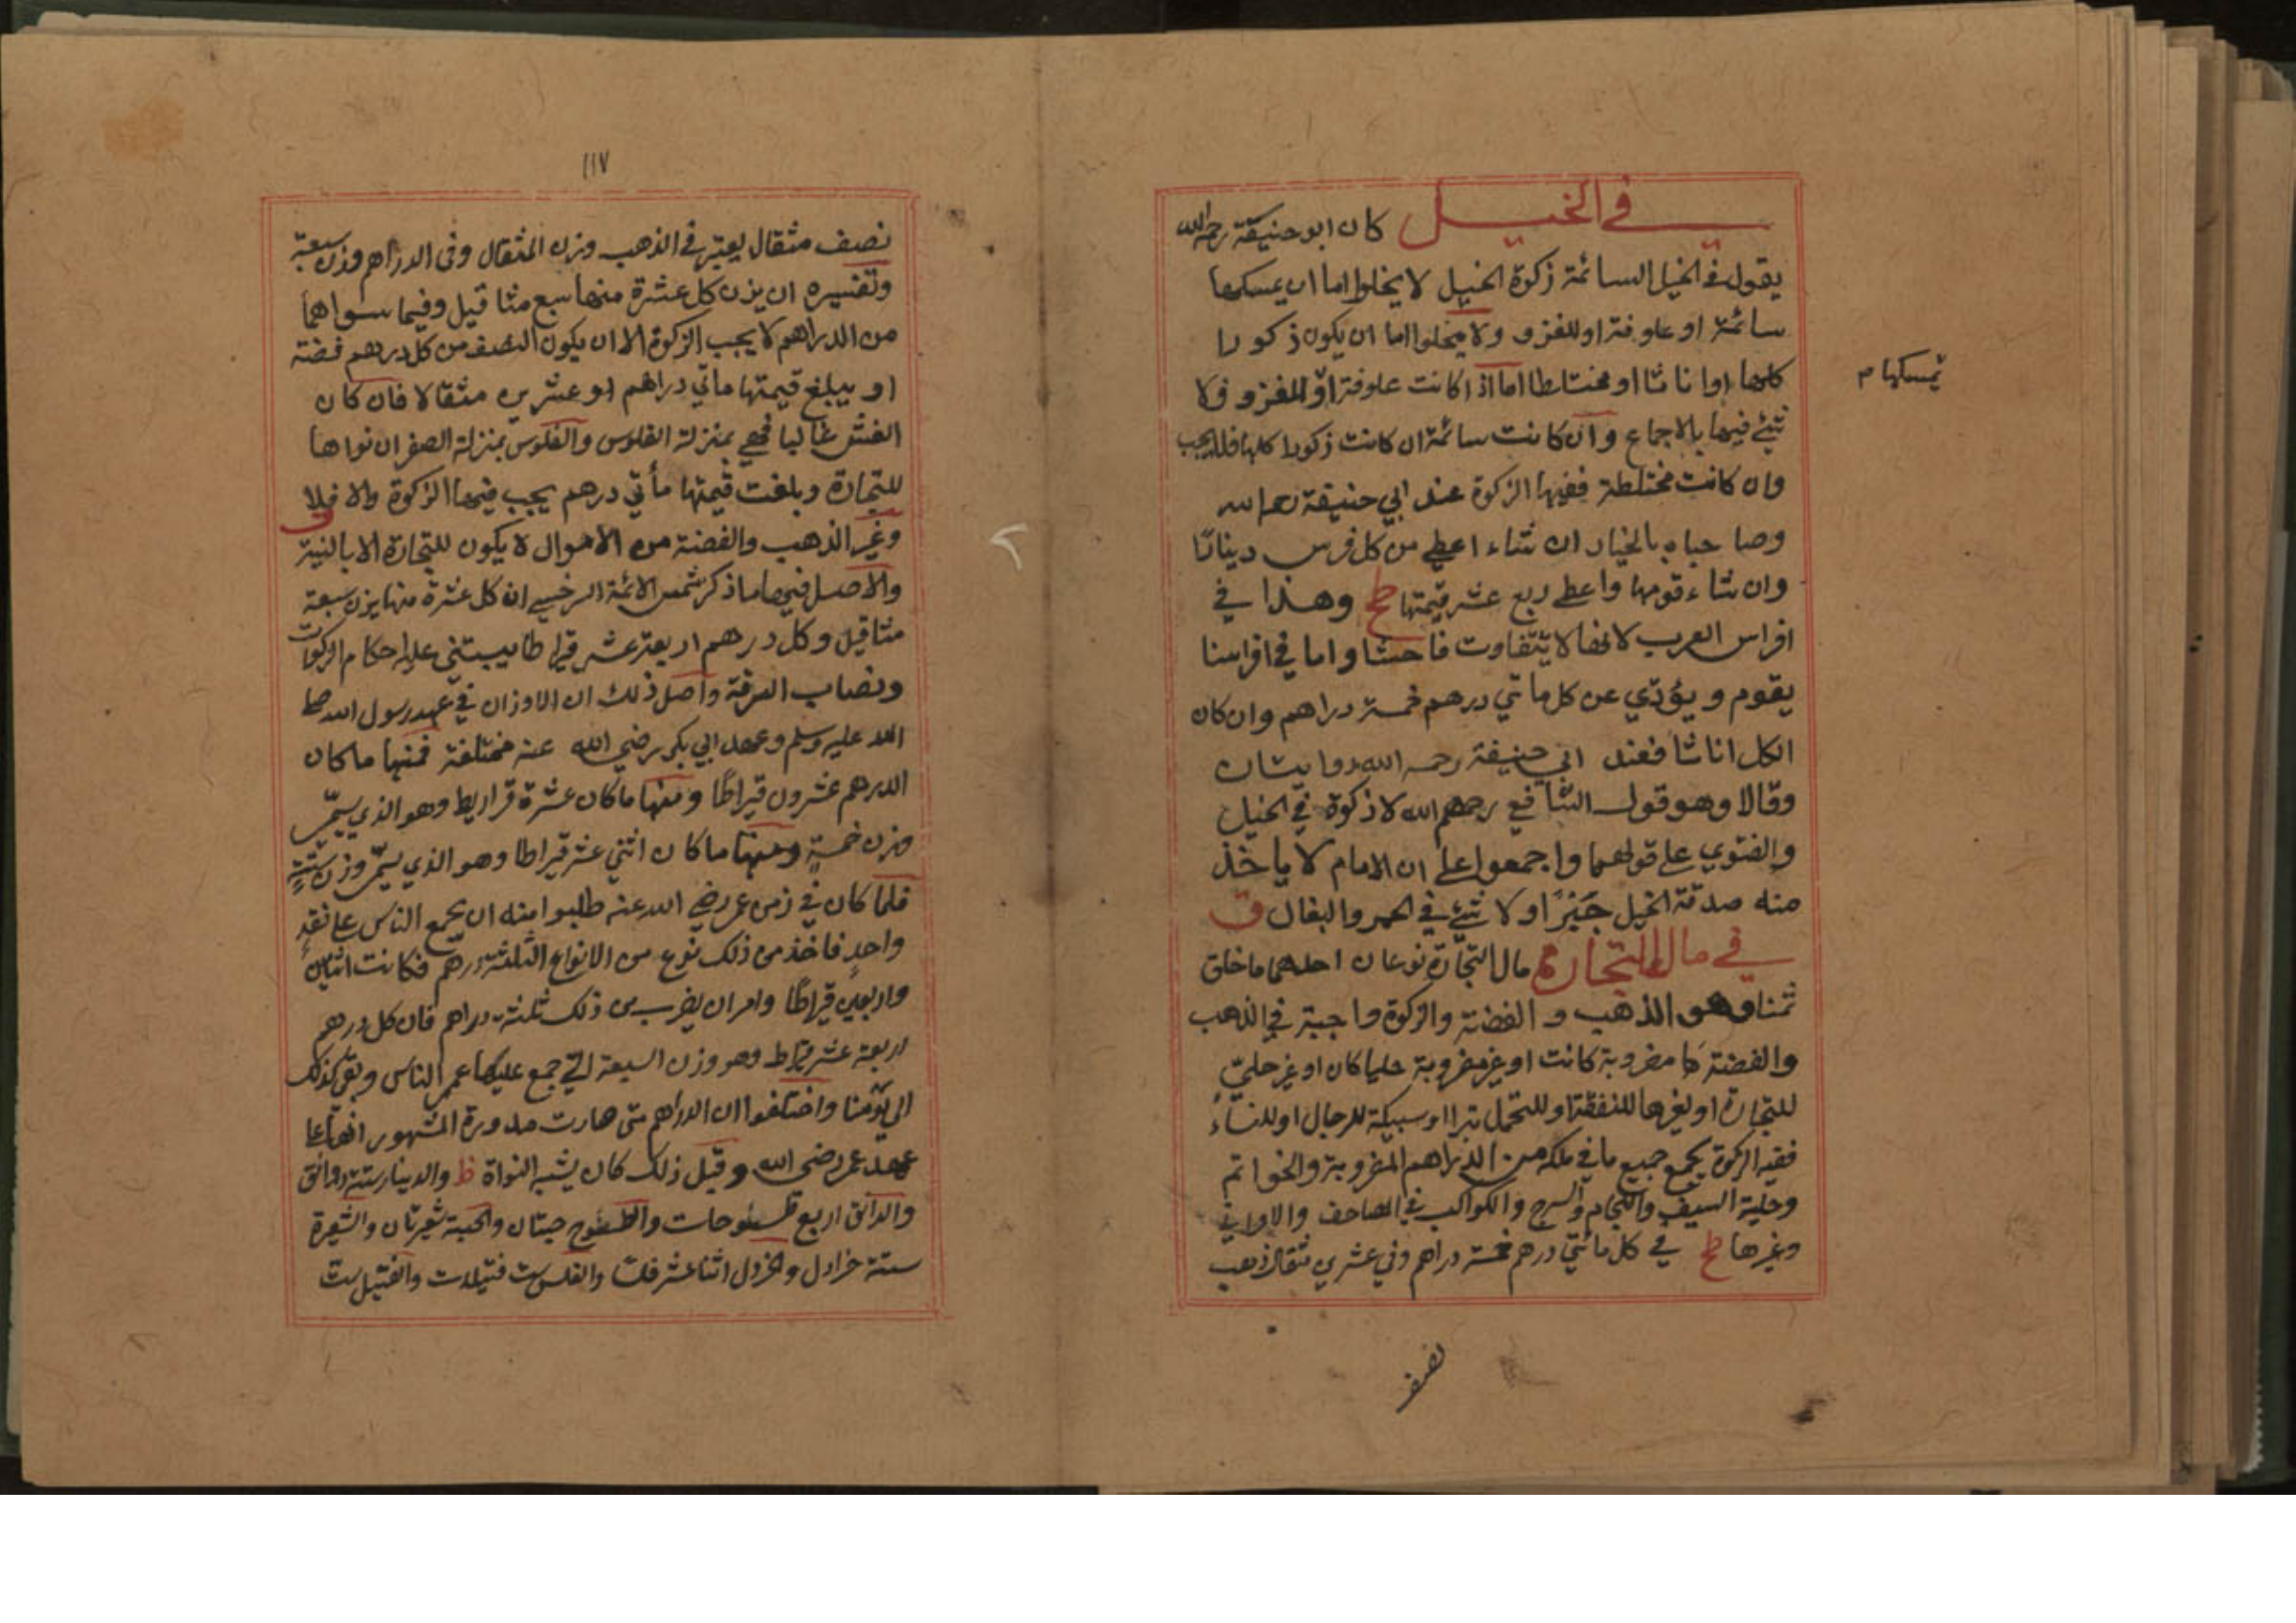 في الخيل كان ابو حنيفة رحمه الله
يقول في الخيل السائمة زكوة الخيل لا يخلوا اما ان يمسكها
سائمة او علوفة او للغزو ولا يخلوا اما ان يكون ذكورا
كلها اوا ناثا او مختلطا اما اذا كانت علوفة او للغزو فلا
تمسكها م
شئ فيها بالاجماع وان كانت سائمة ان كانت ذكورا كلها فلا يجب
وان كانت مختلطة ففيها الزكوة عند ابي حنيفة رحمه الله
وصاحباه بالخيار ان شاء اعطى من كل فرس دينارا
وان شاء قومها واعطى ربع عشر قيمتها طح وهذا في
افراس العرب لانها لا يتفاوت فاحشا واما في افراسنا
يقوم ويؤدي عن كل مأتي درهم خمسة دراهم وان كان
الكل اناثا فعند ابي حنيفة رحمه الله روايتان
وقالا وهو قول الشافعي رحمهم الله لا زكوة في الخيل
والفتوي على قولهما واجمعوا على ان الامام لا ياخذ
منه صدقة الخيل جبرًا ولا شئ في الحمر والبغال ق
في مال التجارة مال التجارة نوعان احدهما ما خلق
ثمنا وهو الذهب و الفضة والزكوة واجبة في الذهب
والفضة مضروبة كانت او غير مضروبة حليا كان او غير حليّ
للتجارة او لغيرها للنفقة او للتجمل تبرا او سبيكة للرجال او للنساء
ففيه الزكوة يجمع جميع ما في ملكه من الدراهم المضروبة والخواتم
وحلية السيف واللجام والسرج والكواكب في المصاحف والاواني
وغيرها طح في كل مائتي درهم خمسة دراهم وفي عشرين مثقال ذهب
نصف
١١٧
نصف مثقال يعتبر في الذهب وزن المثقال وفي الدراهم وزن سبعة
وتفسيره ان يزن كل عشرة منها سبع مثاقيل وفيما سواهما
من الدراهم لا يجب الزكوة الا ان يكون النصف من كل درهم فضة
او يبلغ قيمتها مأتي دراهم او عشرين مثقالا فان كان
الغش غالبا فهي بمنزلة الفلوس والفلوس بمنزلة الصفر ان نواها
للتجارة وبلغت قيمتها مأتي درهم يجب فيها الزكوة والا فلا
وغير الذهب والفضة من الاموال لا يكون للتجارة الا بالنية
والاصل فيها ما ذكر شمس الائمة السرخسي ان كل عشرة منها يزن سبعة
مثاقيل وكل درهم اربعة عشر قيراطا يبتني عليه احكام الزكوات
ونصاب السرقة واصل ذلك ان الاوزان في عهد رسول الله صلى
الله عليه وسلم وعهد ابي بكر رضي الله عنه مختلفة فمنها ما كان
الدرهم عشرون قيراطًا ومنها ما كان عشرة قراريط وهو الذي سمّى
وزن خمسةٍ ومنها ما كان اثني عشر قيراطا وهو الذي سمّى وزن ستةٍ
فلما كان في زمن عمر رضي الله عنه طلبوا منه ان يجمع الناس على نقدٍ
واحدٍ فاخذ من ذلك نوع من الانواع الثلثة درهم فكانت اثنين
واربعين قيراطًا وامر ان يضرب من ذلك ثلثة دراهم فان كل درهم
اربعة عشر قيراط وهو وزن السبعة التي جمع عليها عمر الناس وبقي كذلك
الى يومنا واختلفوا ان الدراهم متى صارت مدورة المشهور انها على
عهد عمر رضي الله وقبل ذلك كان يشبه النواة ظ والدينار ستة دوانق
والدانق اربع طسوجات والطسوج حبتان والحبة شعرتان والشعرة
ستة خرادل والخردل اثنا عشر فلسا والفلس ست فتيلات والفتيل ست